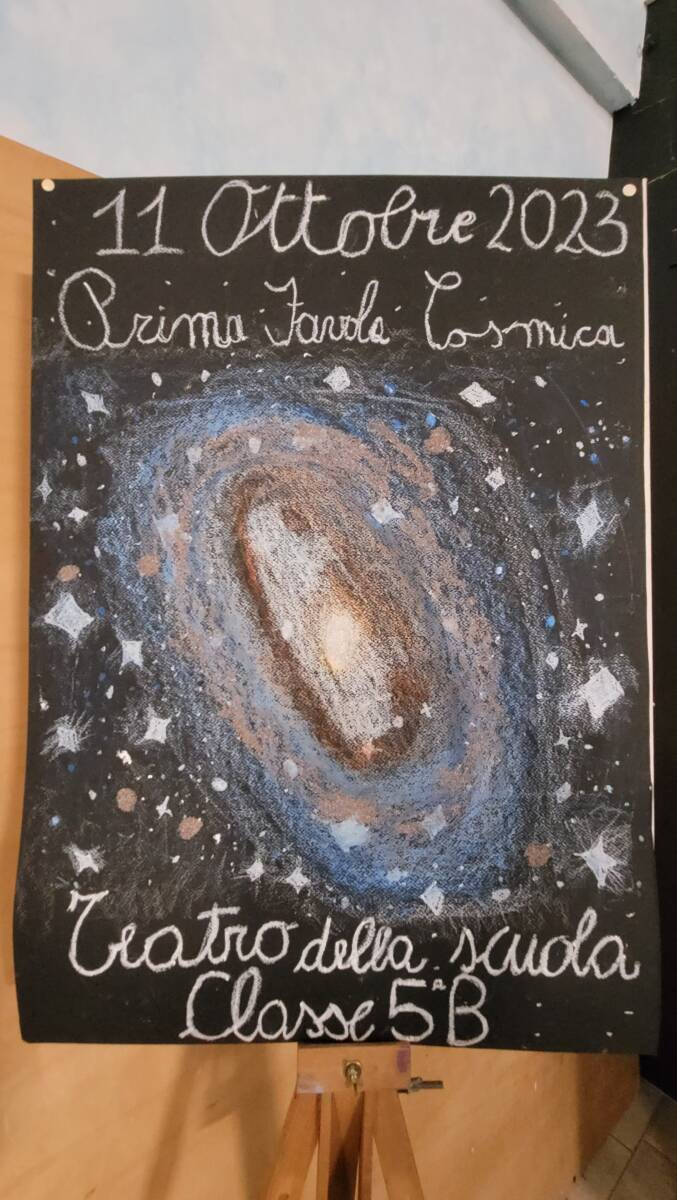 11 Ottobre 2023
Prima Favola Cosmica
Teatro della scuola
Classe 5ª B